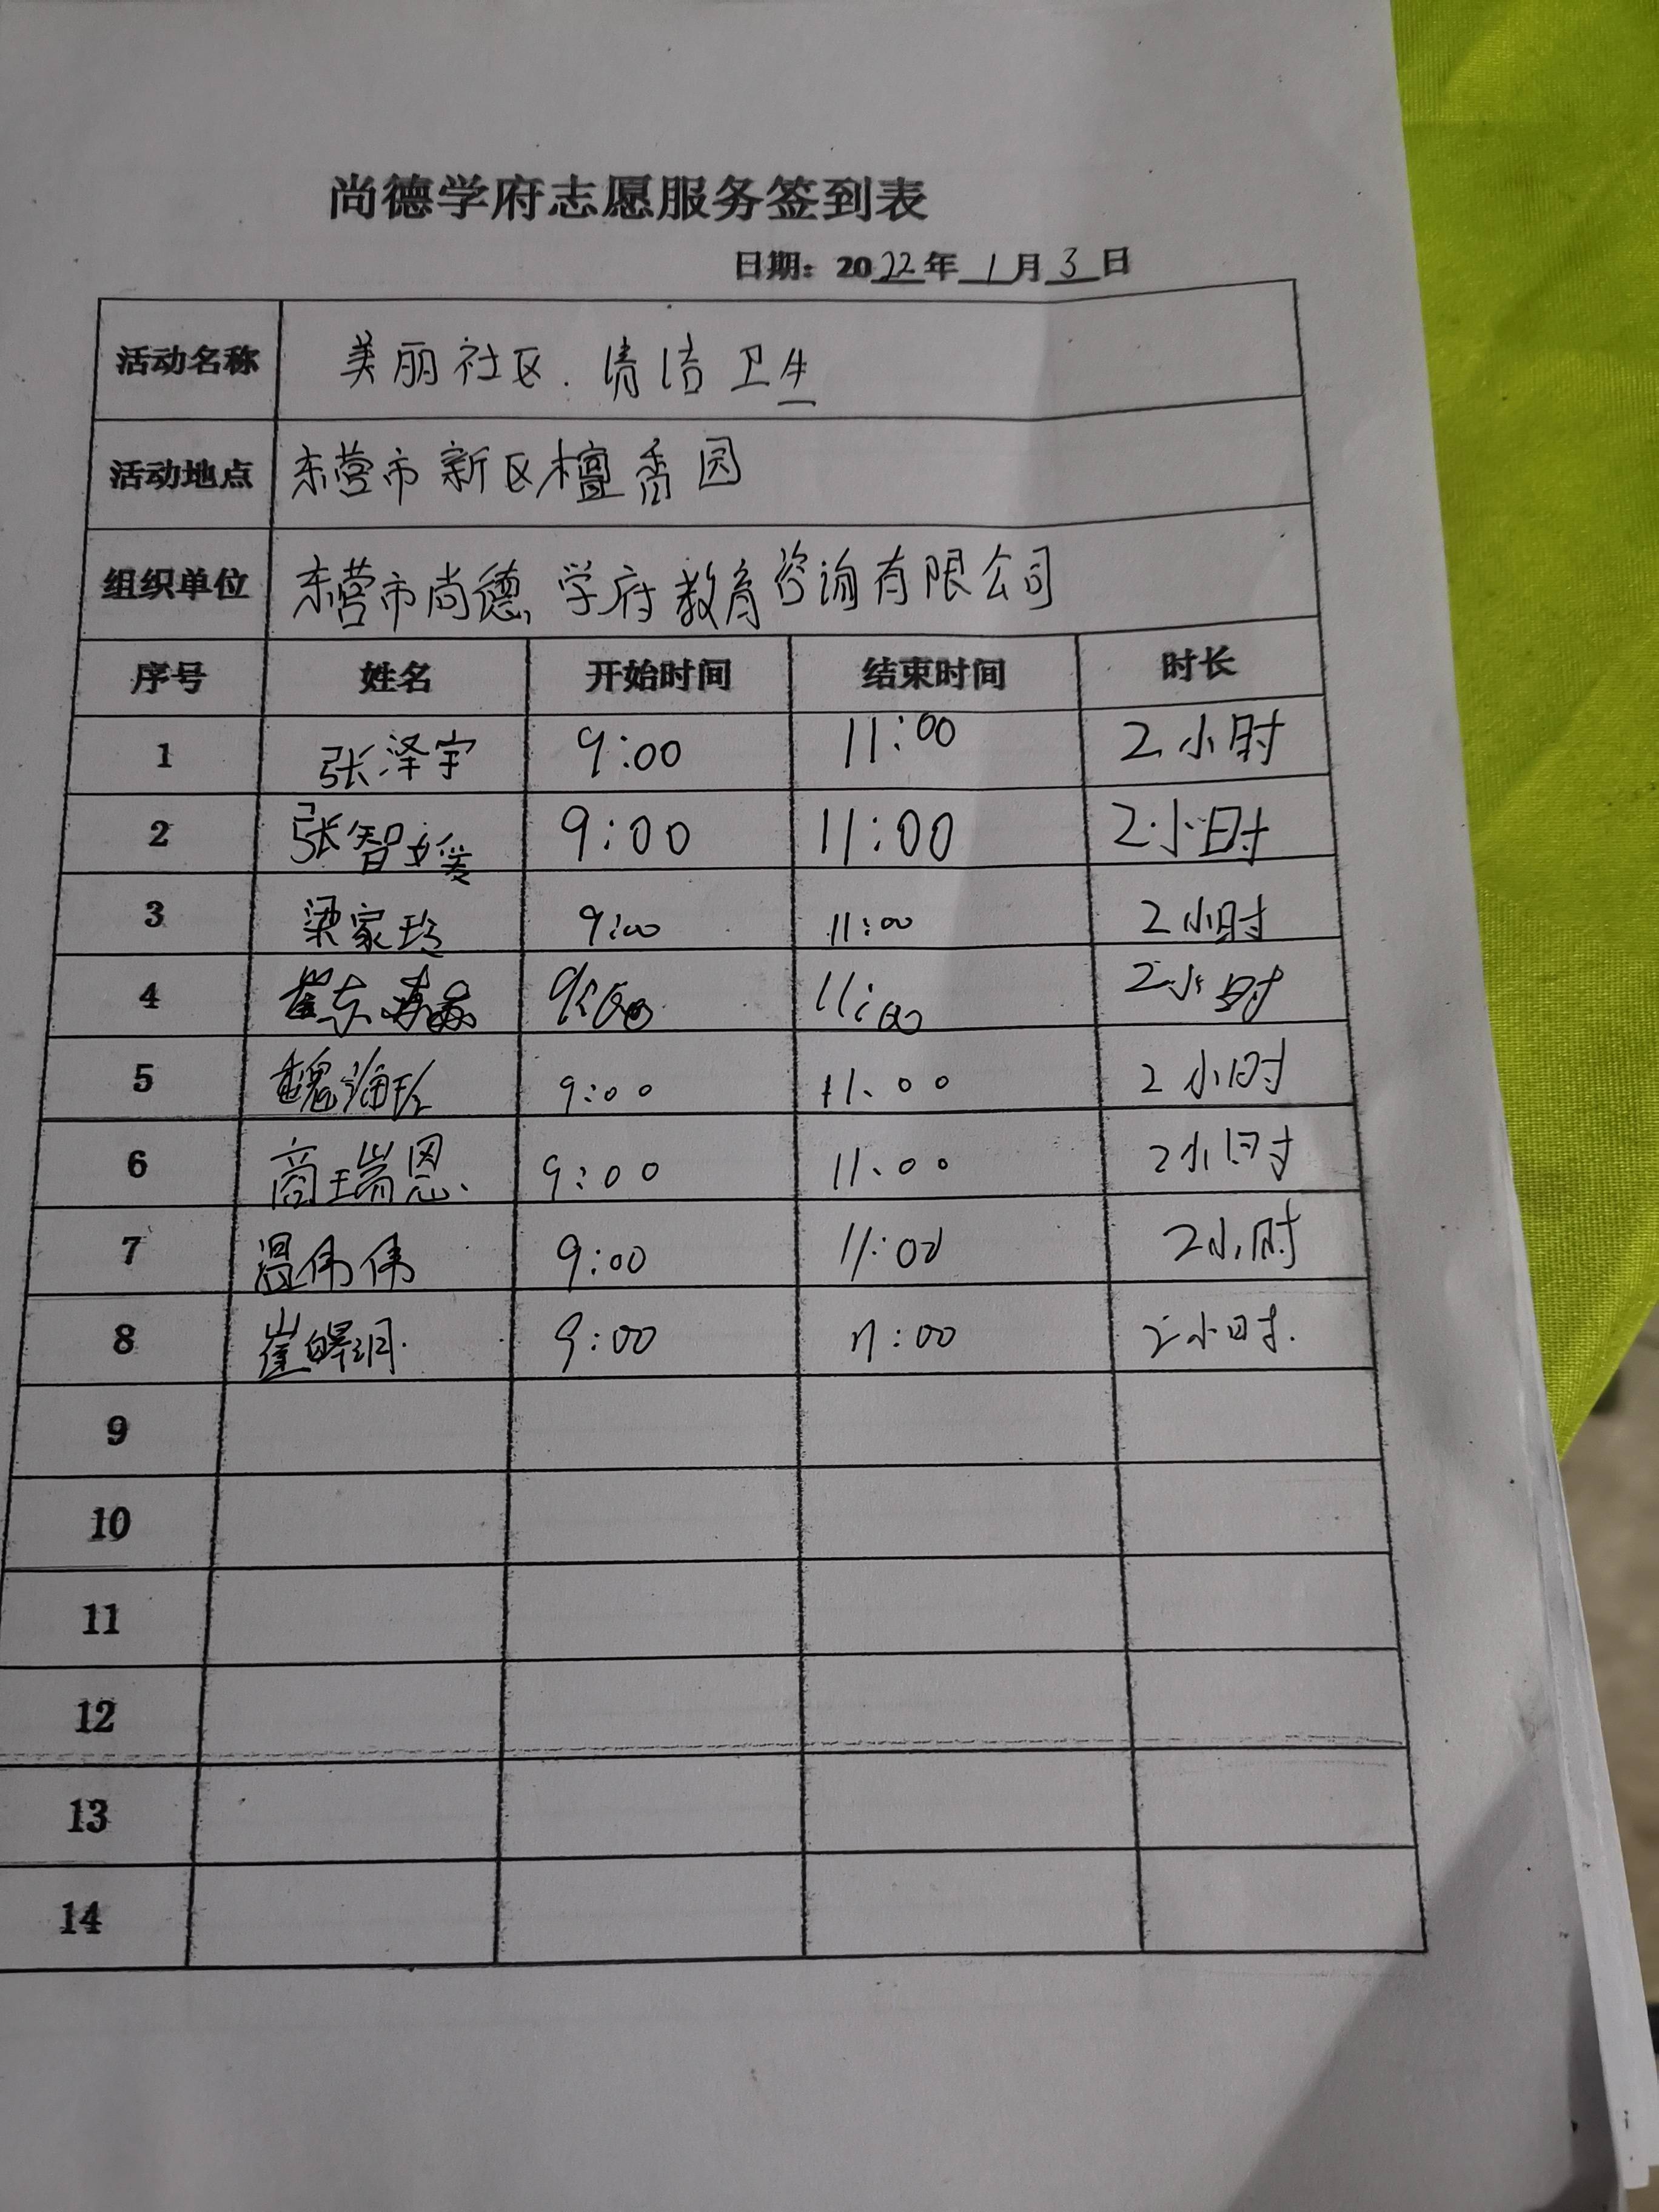 尚德学府志愿服务签到表
日期：2022年1月3日
活动名称 美丽社区.清洁卫生
活动地点 东营市新区檀香园
组织单位 东营市尚德学府教育咨询有限公司
序号 姓名 开始时间 结束时间 时长
1 张泽宇 9:00 11:00 2小时
2 张智媛 9:00 11:00 2小时
3 梁家玲 9:00 11:00 2小时
4 9:00 11:00 2小时
5 9:00 11:00 2小时
6 商瑞恩 9:00 11:00 2小时
7 温伟伟 9:00 11:00 2小时
8 9:00 11:00 2小时.
9
10
11
12
13
14